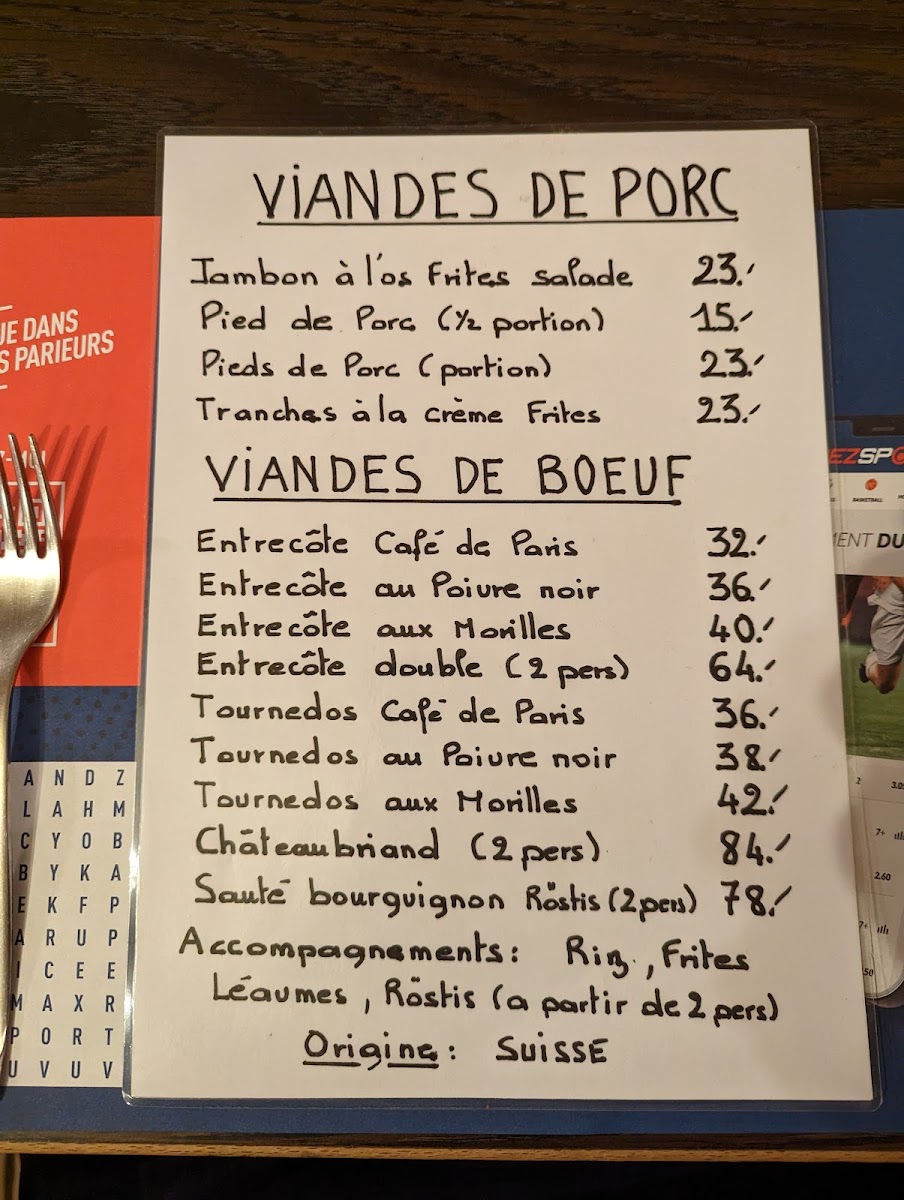 VIANDES DE PORC
Jambon à l'os Frites salade 23.-
Pied de Porc (1/2 portion) 15.-
Pieds de Porc (portion) 23.-
Tranches à la crème Frites 23.-
VIANDES DE BOEUF
Entrecôte Café de Paris 32.-
Entrecôte au Poivre noir 36.-
Entrecôte aux Morilles 40.-
Entrecôte double (2 pers) 64.-
Tournedos Café de Paris 36.-
Tournedos au Poivre noir 38.-
Tournedos aux Morilles 42.-
Châteaubriand (2 pers) 84.-
Sauté bourguignon Röstis (2 pers) 78.-
Accompagnements: Riz, Frites
Légumes, Röstis (a partir de 2 pers)
Origine: SUISSE
UE DANS
S PARIEURS
A N D Z
L A H M
C Y O B
B Y K A
E K F P
A R U P
I C E E
M A X R
P O R T
U V U V
EZSPO
BASKETBALL
MENT DU
2 3.0
7+
2.60
7+
50